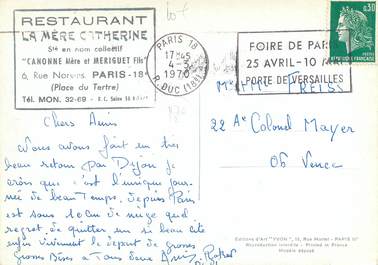 RESTAURANT
LA MÈRE CATHERINE
Sté en nom collectif
"CANONNE Mère et MERIGUET Fils"
6, Rue Norvins, PARIS-18e
(Place du Tertre)
Tél. MON. 32-69 - R.C. Seine
PARIS 18
17H
4-3
1970
R. DUC (18E)
FOIRE DE PARIS
25 AVRIL-10 MAI
PORTE DE VERSAILLES
0,30
RÉPUBLIQUE FRANÇAISE
Mr Mme FREISS
22 Av Colonel Mayer
06 Vence
Chers Amis
Nous avons fait un très
beau retour par Dijon je
crois que c'est l'unique jour-
née de beau temps, depuis Paris
est sous 10 cm de neige quel
regret de quitter un si beau cite
enfin vivement le depart de
Grosses Bises a Tous deux
Editions d'Art "YVON", 15, Rue Martel - PARIS-10e
Reproduction interdite - Printed in France
Modèle déposé